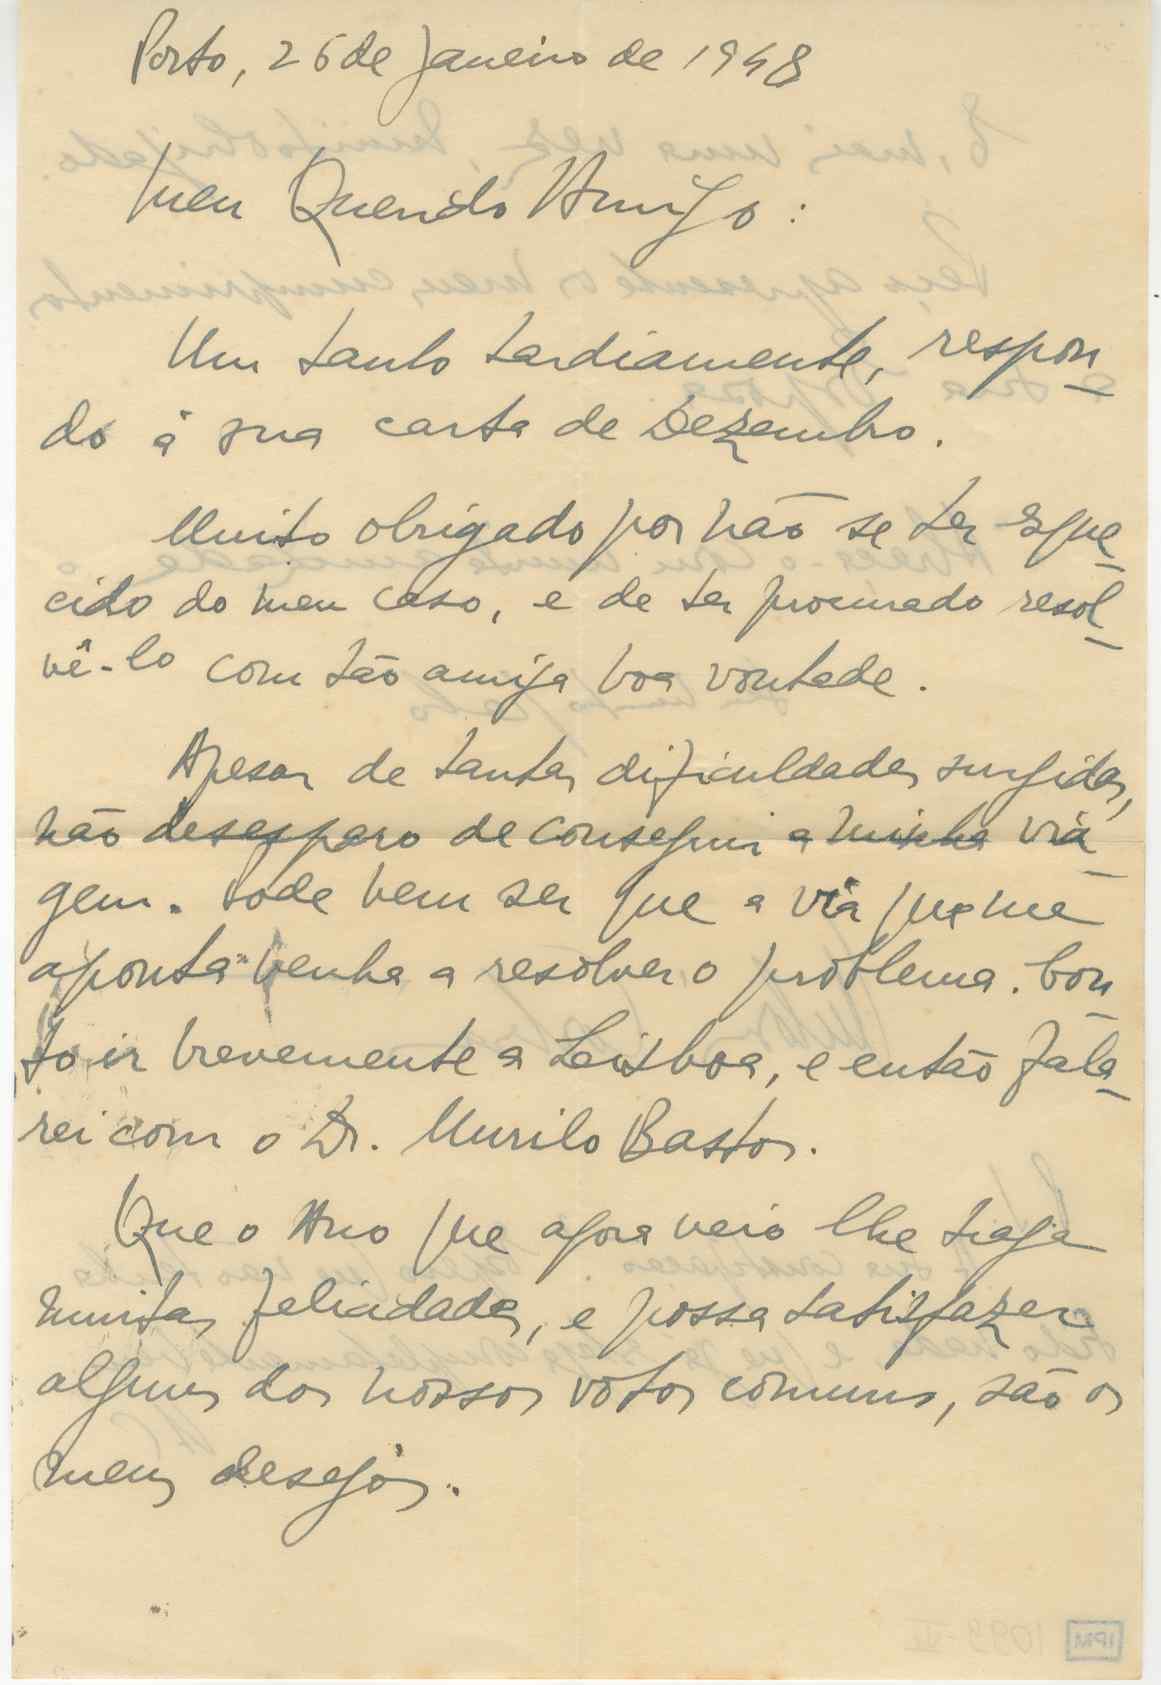 Porto, 26 de Janeiro de 1948
Meu Querido Amigo:
Um tanto tardiamente, respon-
do à sua carta de Dezembro.
Muito obrigado por não se ter esque-
cido do meu caso, e de ter procurado resol-
vê-lo com tão amiga boa vontade.
Apesar de tantas dificuldades surgidas,
não desespero de conseguir a minha via-
gem. Pode bem ser que a via que me
aponta venha a resolver o problema. Con-
to ir brevemente a Lisboa, e então fala-
rei com o Dr. Murilo Bastos.
Que o Ano que agora veio lhe traga
muitas felicidades, e possa satisfazer
alguns dos nossos votos comuns, são os
meus desejos.
IPM
1099-VI